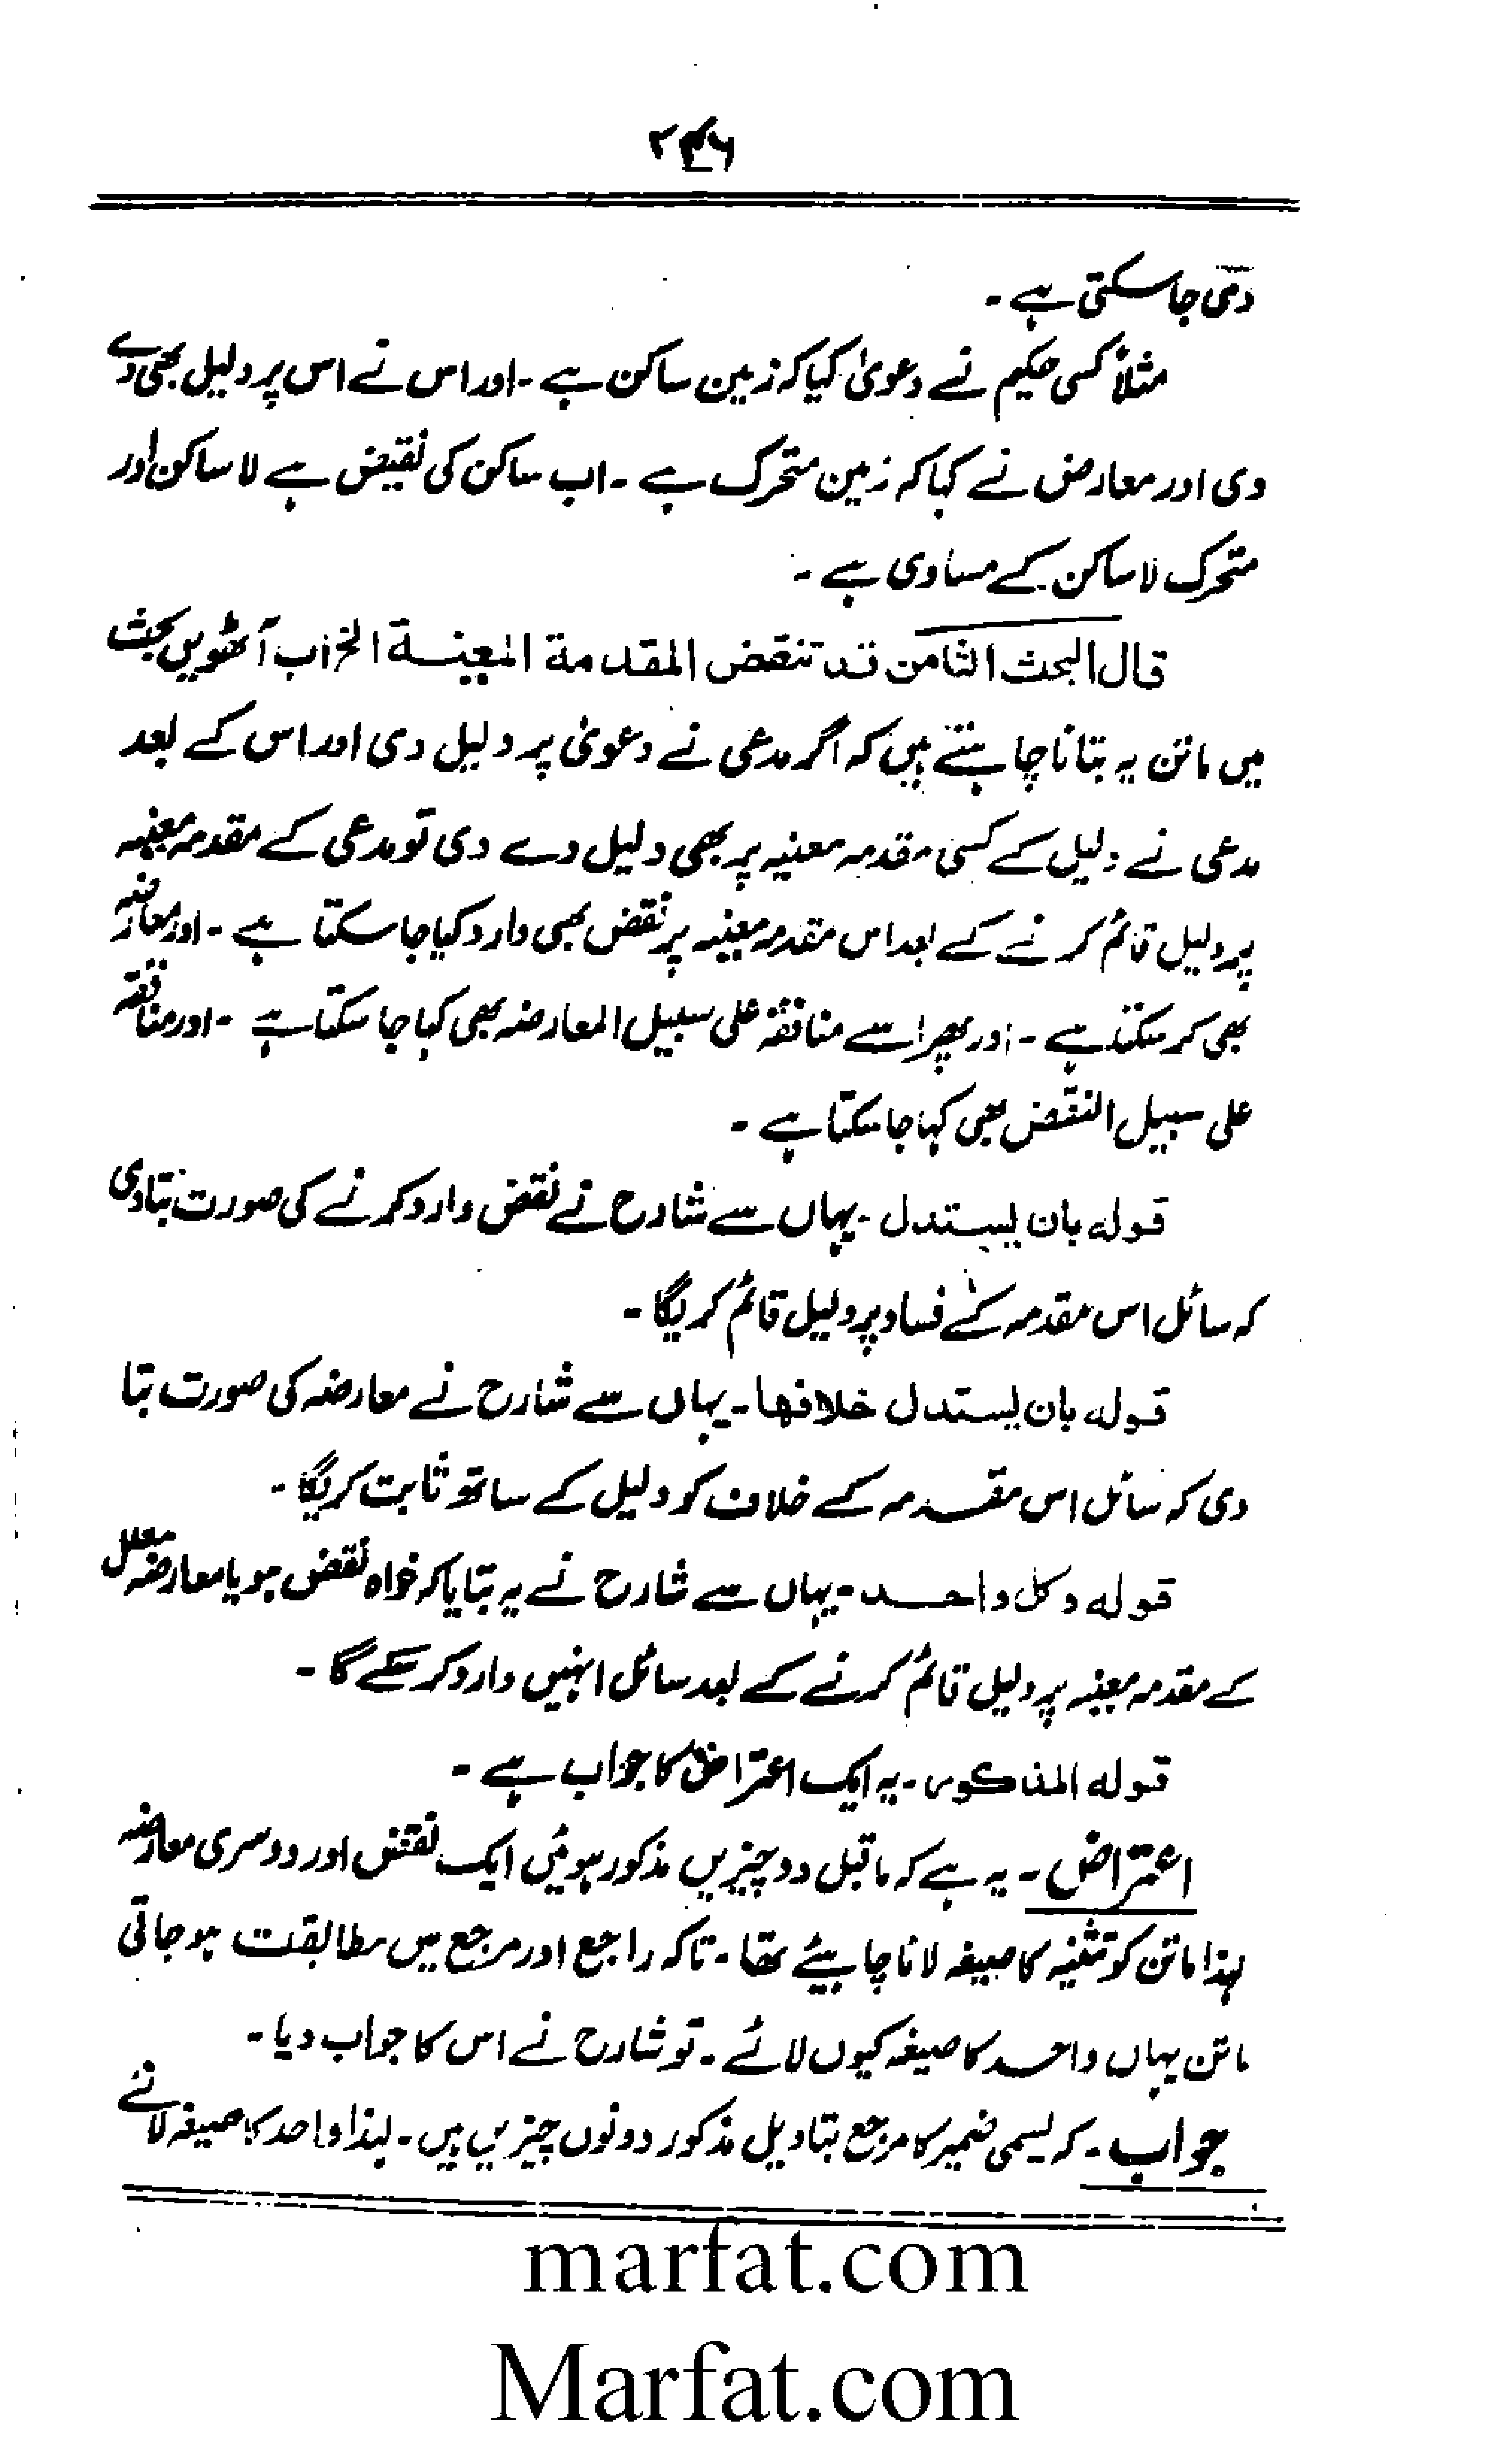 ۲۴۶
دی جا سکتی ہے ۔
مثلاً کسی حکیم نے دعویٰ کیا کہ زمین ساکن ہے ۔ اور اس نے اس پر دلیل بھی دے
دی اور معارض نے کہا کہ زمین متحرک ہے ۔ اب ساکن کی نقیض ہے لا ساکن اور
متحرک لا ساکن کے مساوی ہے ۔
قال البحث الثامن قد تنقض المقدمة المعينة الخ اب آٹھویں بحث
میں ماتن یہ بتانا چاہتے ہیں کہ اگر مدعی نے دعویٰ پر دلیل دی اور اس کے بعد
مدعی نے دلیل کے کسی مقدمہ معنیہ پر بھی دلیل دے دی تو مدعی کے مقدمہ معینہ
پر دلیل قائم کرنے کے بعد اس مقدمہ معینہ پر نقض بھی وارد کیا جا سکتا ہے ۔ اور معارضہ
بھی کر سکتا ہے ۔ اور پھر اسے مناقضہ علی سبیل المعارضہ بھی کہا جا سکتا ہے ۔ اور مناقضہ
علی سبیل النقض بھی کہا جا سکتا ہے ۔
قوله بان يستدل ۔ یہاں سے شارح نے نقض وارد کرنے کی صورت بتا دی
کہ سائل اس مقدمہ کے فساد پر دلیل قائم کریگا ۔
قوله بان يستدل خلافها ۔ یہاں سے شارح نے معارضہ کی صورت بتا
دی کہ سائل اس مقدمہ کے خلاف کو دلیل کے ساتھ ثابت کریگا ۔
قوله وكل واحد ۔ یہاں سے شارح نے یہ بتایا کہ خواہ نقض ہو یا معارضہ معلل
کے مقدمہ معینہ پر دلیل قائم کرنے کے بعد سائل انہیں وارد کر سکے گا ۔
قوله المذكور ۔ یہ ایک اعتراض کا جواب ہے ۔
اعتراض ۔ یہ ہے کہ ماقبل دو چیزیں مذکور ہوئیں ایک نقض اور دوسری معارضہ
لہذا ماتن کو تثنیہ کا صیغہ لانا چاہیئے تھا ۔ تاکہ راجع اور مرجع میں مطابقت ہو جاتی
ماتن یہاں واحد کا صیغہ کیوں لائے ۔ تو شارح نے اس کا جواب دیا ۔
جواب ۔ کہ یسمی ضمیر کا مرجع بتاویل مذکور دونوں چیزیں ہیں ۔ لہذا واحد کا صیغہ لانے
marfat.com
Marfat.com